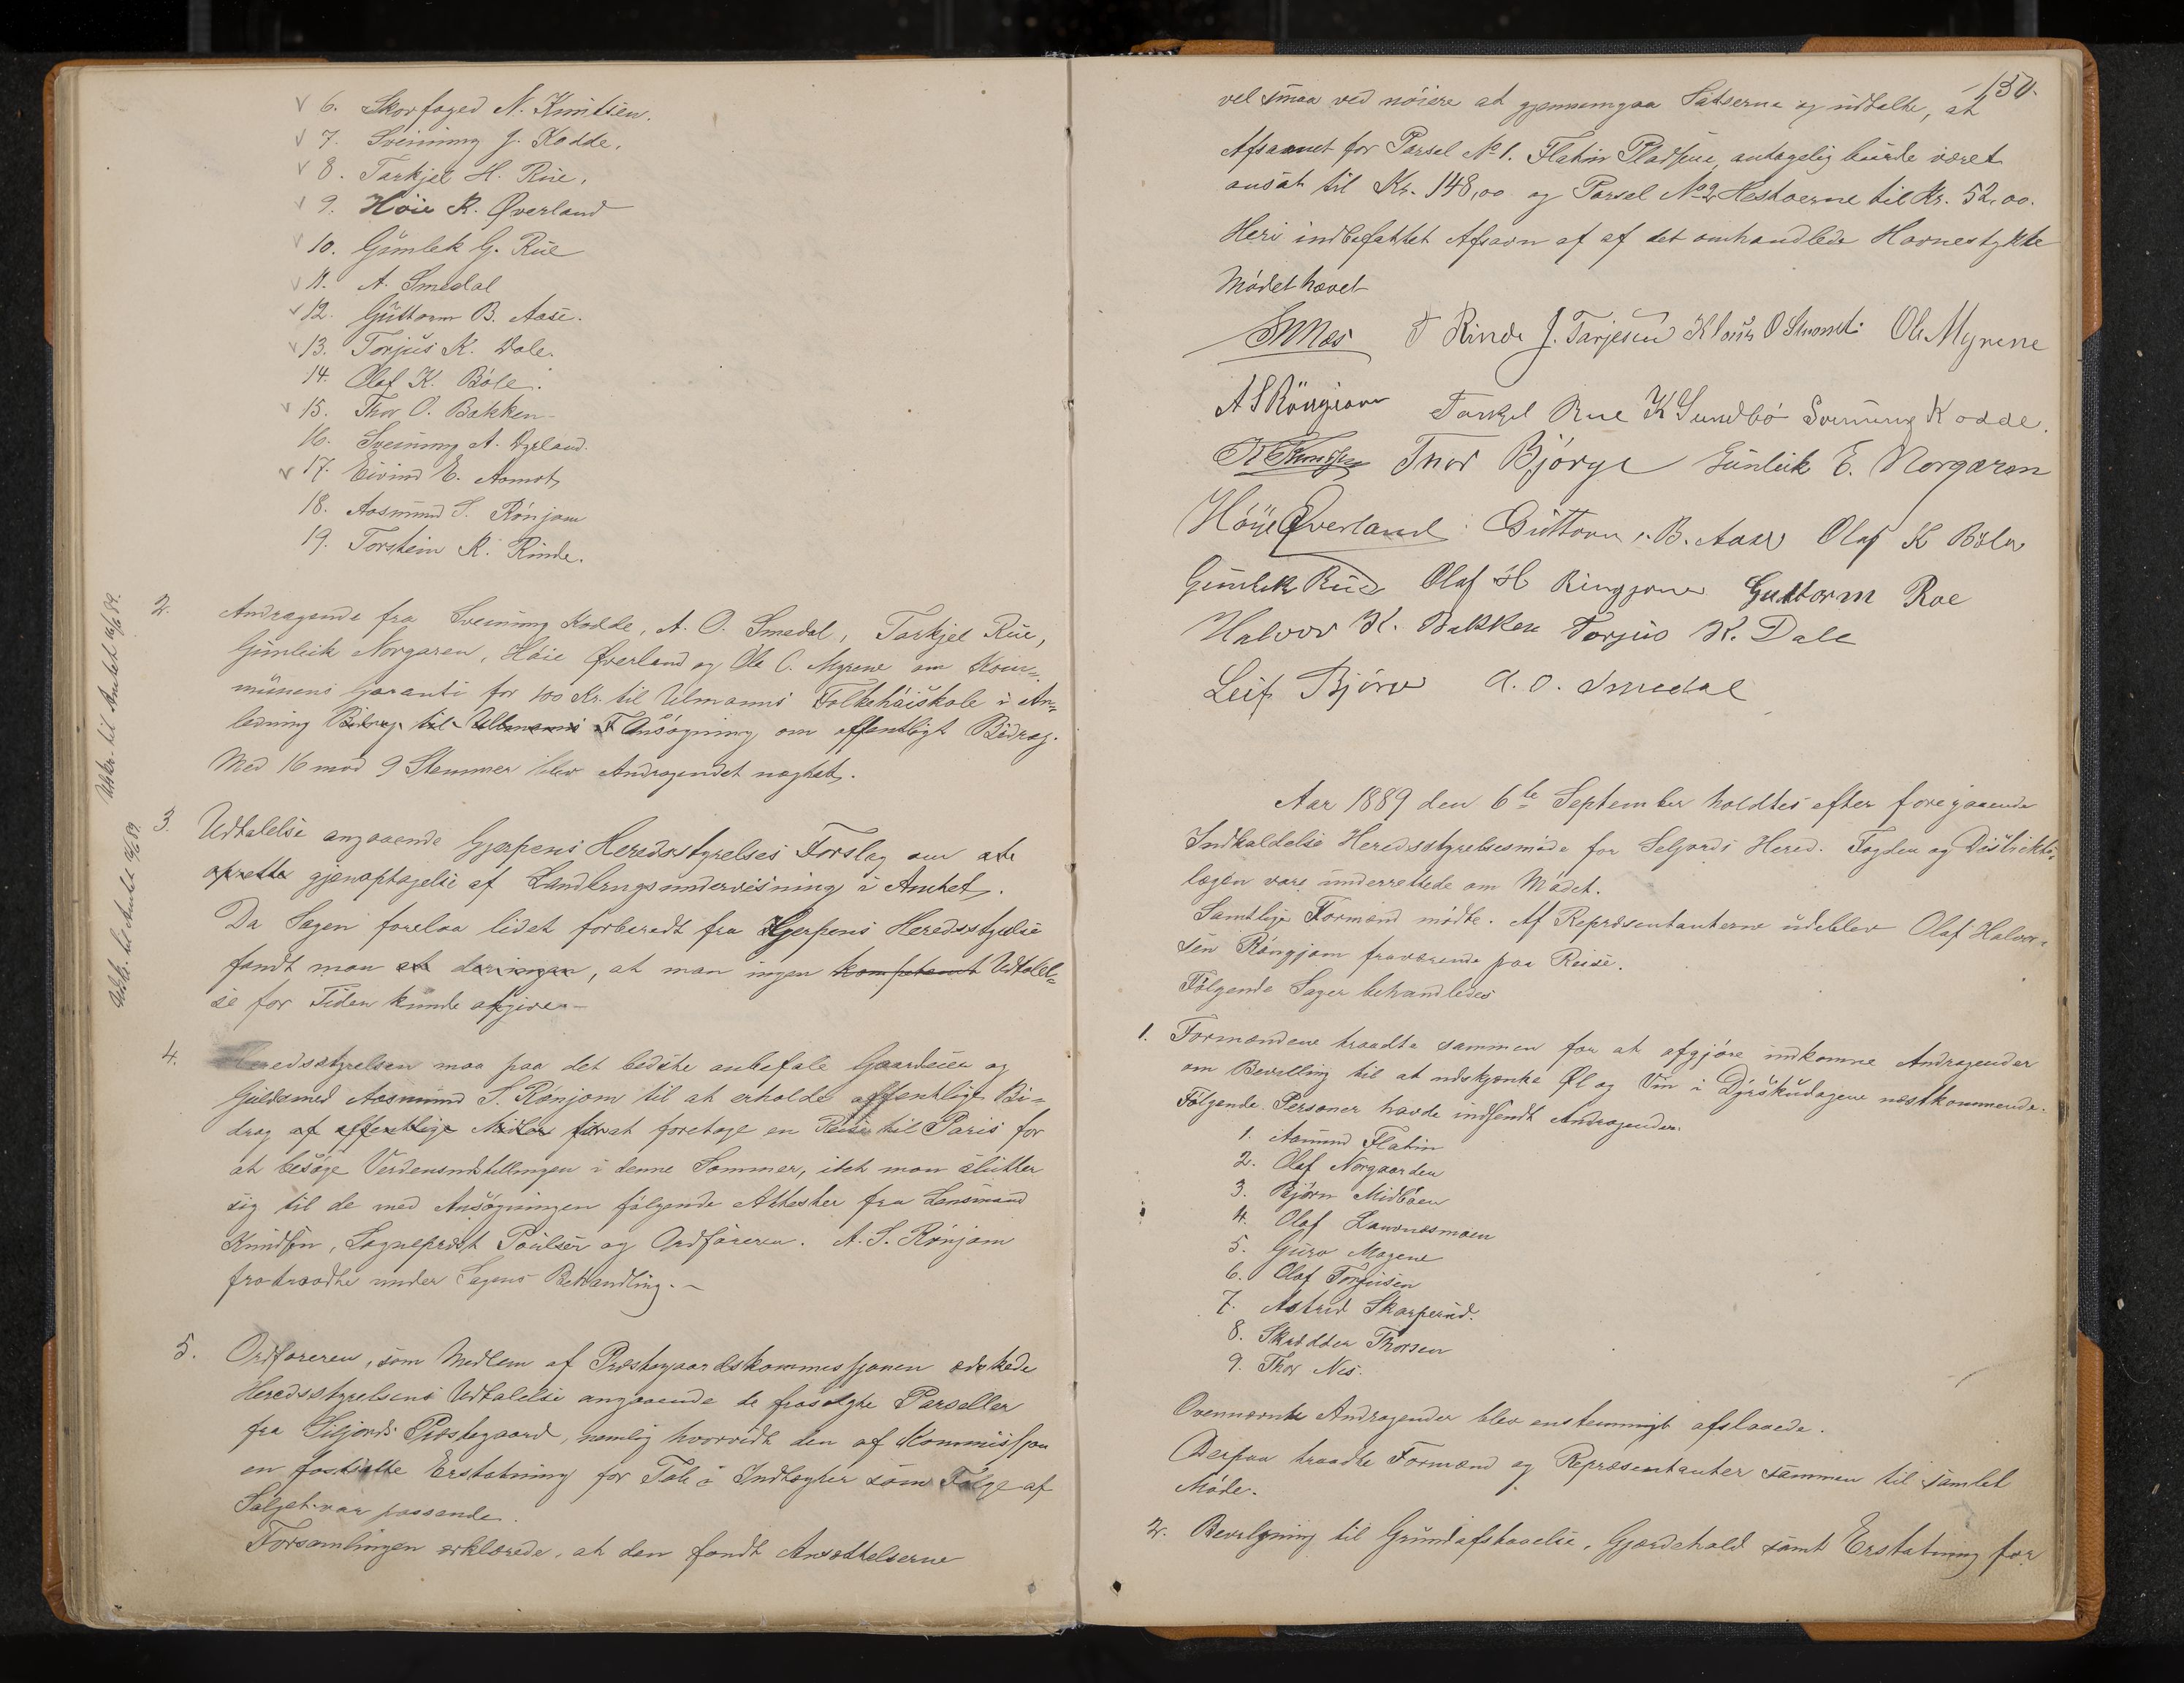 6. Skovfoged N. Knudsen.
7. Sveinung J. Kodde.
8. Tarkjel H. Rue.
9. Høie K. Øverland
10. Gunlek G. Rue
11. A. Smedal
12. Guttorm B. Aase.
13. Torjus K. Dale.
14. Olaf K. Bøle.
15. Thor O. Bakken
16. Sveinung A. Dyrland.
17. Eivind E. Aamot
18. Aasmund S. Rønjom
19. Torstein K. Rinde.
2. Andragende fra Sveinung Kodde, A. O. Smedal, Tarkjel Rue,
Gunleik Norgaren, Høie Øverland og Ole O. Myrene om Kom=
munens Garanti for 100 Kr. til Ulmanns Folkehøiskole i An=
ledning Bidrag til Ullmanns F Ansøgning om offentligt Bidrag.
Med 16 mod 9 Stemmer blev Andragendet nægtet.
Udskr. til Amtet 16/6 89.
3. Udtalelse angaaende Gjerpens Heredsstyrelses Forslag om at
oprette gjenoptagelse af Landbrugsundervisning i Amtet.
Da Sagen forelaa lidet forberedt fra Gjerpens Heredsstyrelse
fandt man at deringen, at man ingen kompetent Udtalel=
se for Tiden kunde afgives
Udskr. til Amtet 16/6 89
4. Heredsstyrelsen maa paa det bedste anbefale Gaardeier og
Guldsmed Aasmund S. Rønjom til at erholde offentlige Bi=
drag af offentlige Midler for at foretage en Reise til Paris for
at besøge Verdensudstillingen i denne Sommer, idet man slutter
sig til de med Ansøgningen følgende Attester fra Lensmand
Knudsen, Sogneprest Poulsen og Ordføreren. A. S. Rønjom
fratraadte under Sagens Behandling.
5. Ordføreren, som Medlem af Præstegaardskommissjonen ædskede
Heredsstyrelsens Udtalelse angaaende de frasolgte Parseller
fra Siljords Præstegaard, nemlig hvorvidt den af Kommissjon
en fastsatte Erstatning for Tab i Indtægter som Følge af
Salget var passende.
Forsamlingen erklærede, at den fandt Ansættelserne
150.
vel smaa ved nøiere at gjennemgaa Satserne og udtalte, at
Afsavnet for Parsel No 1. Flatin Pladsene, antagelig burde været
ansat til Kr. 148,00 og Parsel No 2 Hestøerne til Kr. 52,00.
Heri indbefattet Afsavn af af det omhandlede Havnestykke
Mødet hævet
T Rinde J. Tarjesen Ole Myrene
A S Rönnjom Tarkjel Rue K Sundbö Sveinung Kodde.
Thor Björge Gunleik E. Norgaren
Höye Øverland Guttorm B. Aase Olaf K Bøle
Gunlek Rue Olaf H Ringjom Guttorm Roe
Halvor K. Bakken Torjus K. Dale
Leif Björge A. O. Smedal
Aar 1889 den 6te September holdtes efter foregaaende
Indkaldelse Heredsstyrelsesmøde for Seljords Hered. Fogden og Distrikts=
lægen vare underrettede om Mødet.
Samtlige Formænd mødte. Af Repræsentanterne udeblev Olaf Halvor=
sen Røngjom fraværende paa Reise.
Følgende Sager behandledes
1. Formændene traadte sammen for at afgjøre indkomne Andragender
om Bevilling til at udskjænke Øl og Vin i Dyrskudagene næstkommende.
Følgende Personer havde indsendt Andragender.
1. Aamund Flatin
2. Olaf Norgaarden
3. Bjørn Midbøen
4. Olaf Lauvnesmoen
5. Guro Mogene
6. Olaf Torjusen
7. Astrid Skarperud.
8. Skrædder Thorsen
9. Thor Nes.
Ovennævnte Andragender blev enstemmigt afslaaede.
Derpaa traadte Formænd og Repræsentanter sammen til samlet
Møde.
2. Bevilgning til Grundafstaaelse, Gjærdehold samt Erstatning for